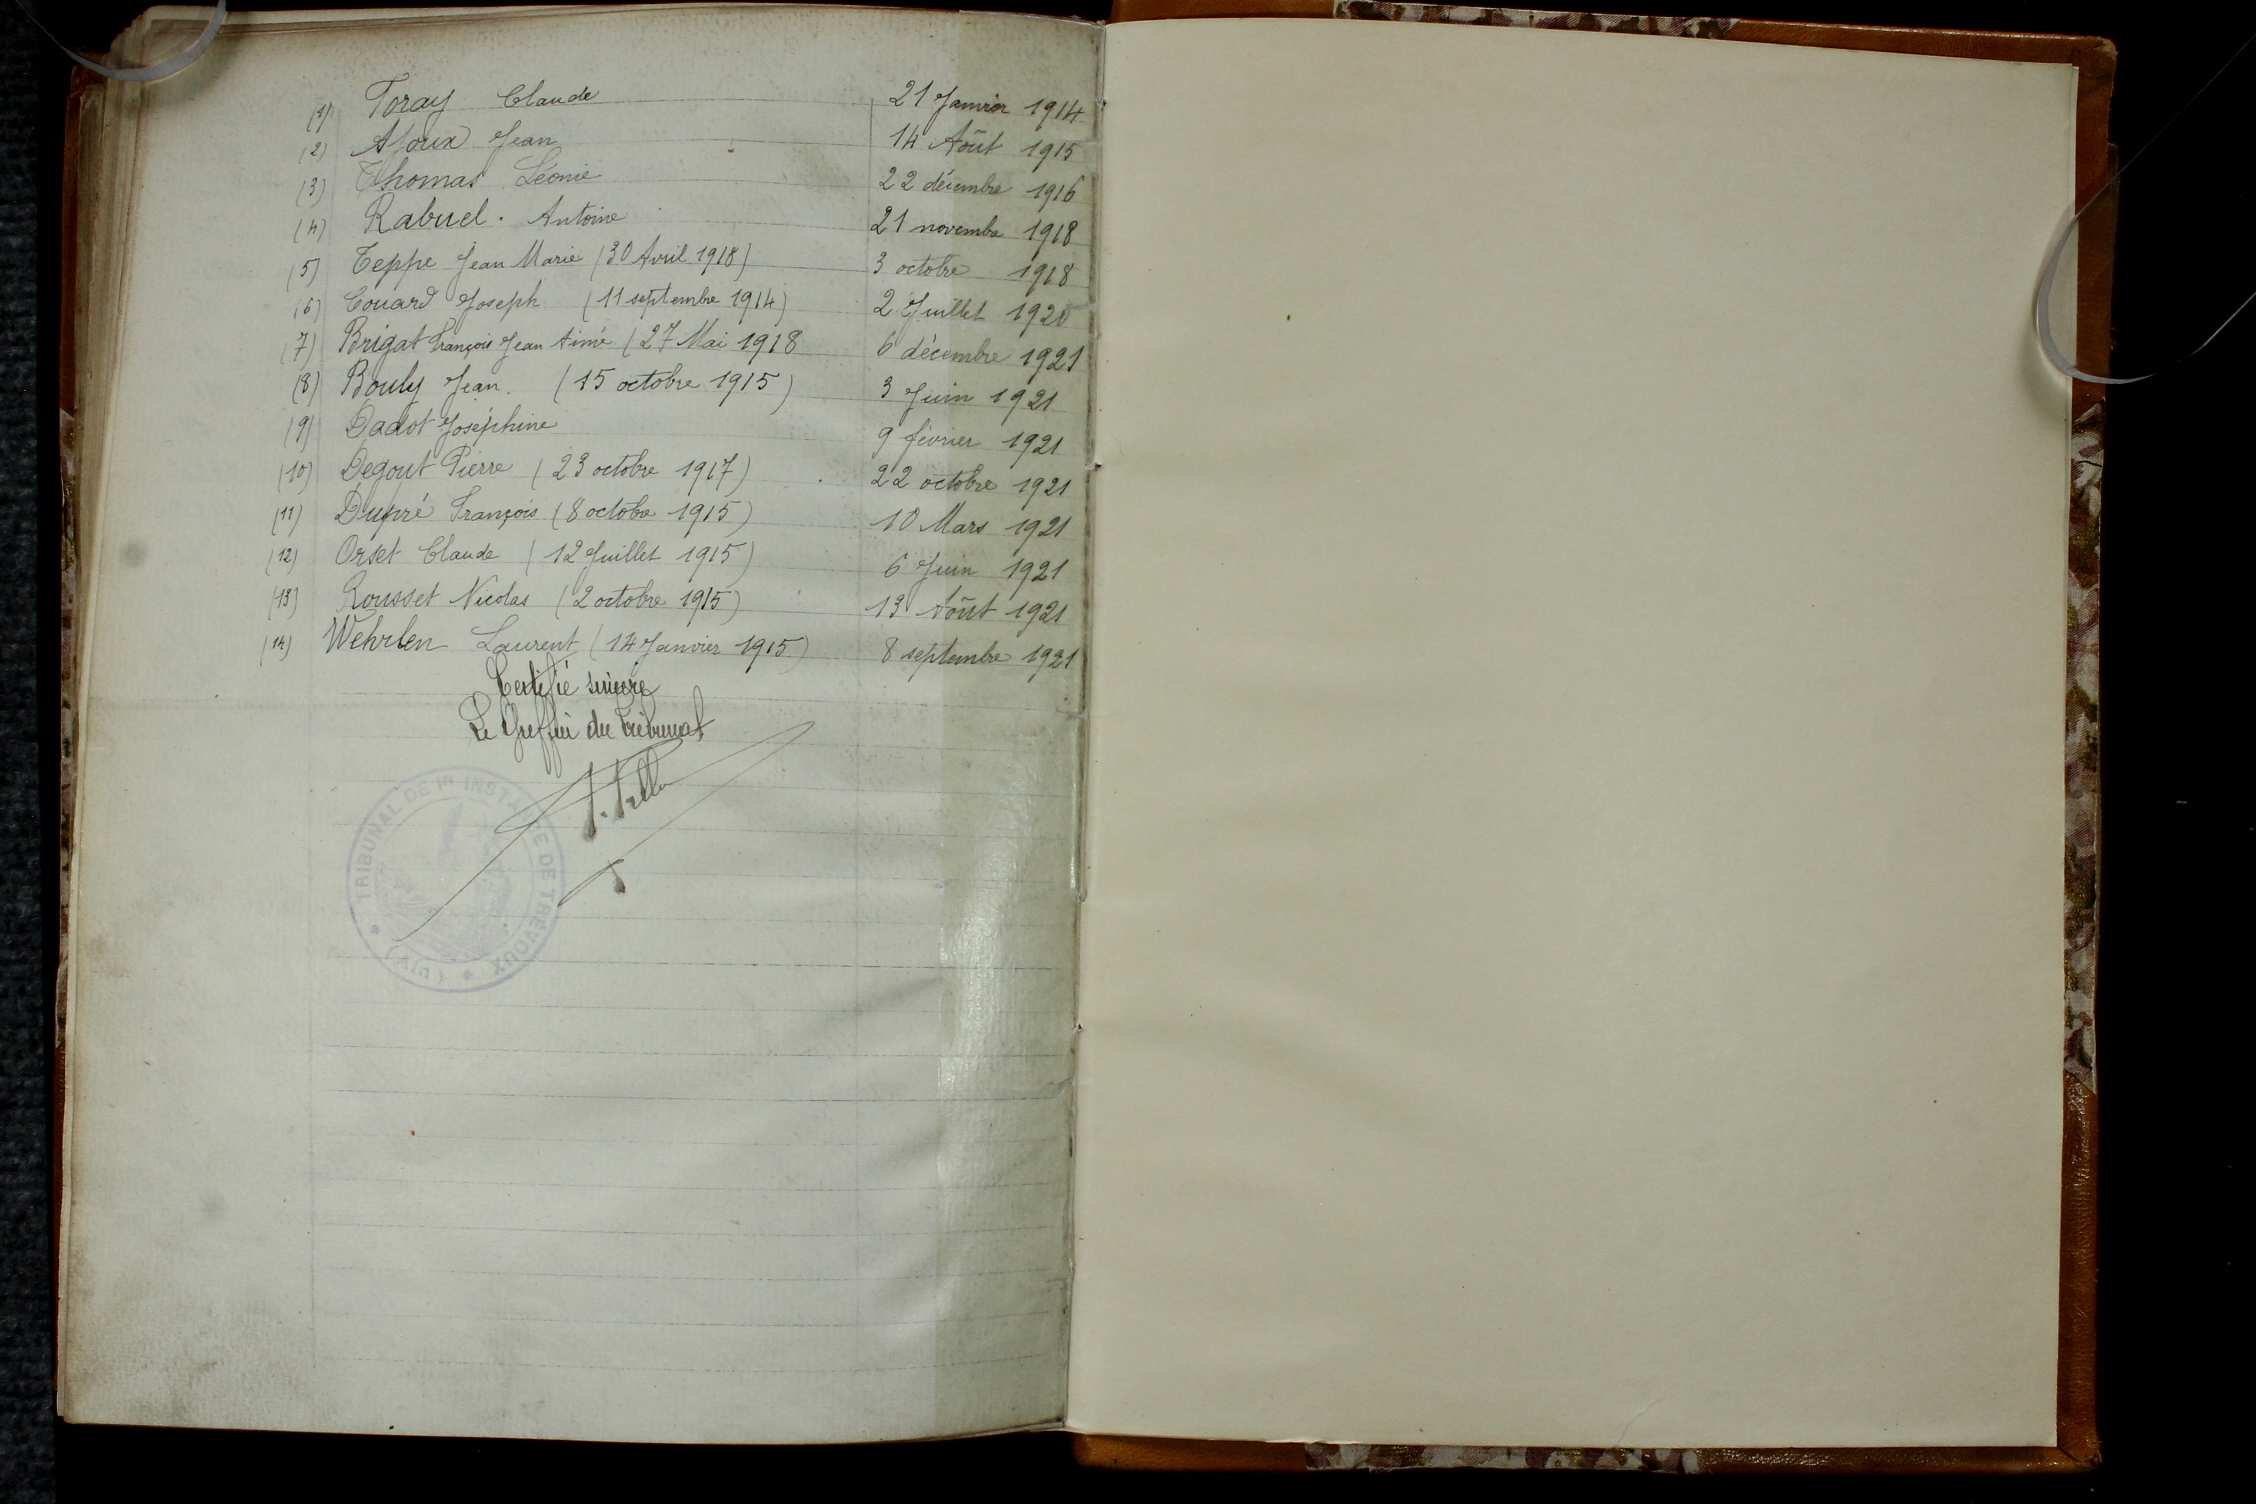 (1) Foray Claude 21 Janvier 1914
(2) Aloux Jean 14 Août 1915
(3) Thomas Léonie 22 décembre 1916
(4) Rabuel. Antoine 21 novembre 1918
(5) Teppe Jean Marie (30 Avril 1918) 3 octobre 1918
(6) Couard Joseph (11 septembre 1914) 2 Juillet 1920
(7) Brigat François Jean Aimé (27 Mai 1918 6 décembre 1921
(8) Bouly Jean. (15 octobre 1915) 3 Juin 1921
(9) Dadot Joséphine 9 février 1921
(10) Degout Pierre (23 octobre 1917) 22 octobre 1921
(11) Dupré François (8 octobre 1915) 10 Mars 1921
(12) Orset Claude (12 Juillet 1915) 6 Juin 1921
(13) Rousset Nicolas (2 octobre 1915) 13 Août 1921
(14) Wehrlen Laurent (14 Janvier 1915) 8 septembre 1921
Certifié sincère
Le Greffier du Tribunal
TRIBUNAL DE 1re INSTANCE DE TREVOUX * (AIN) *